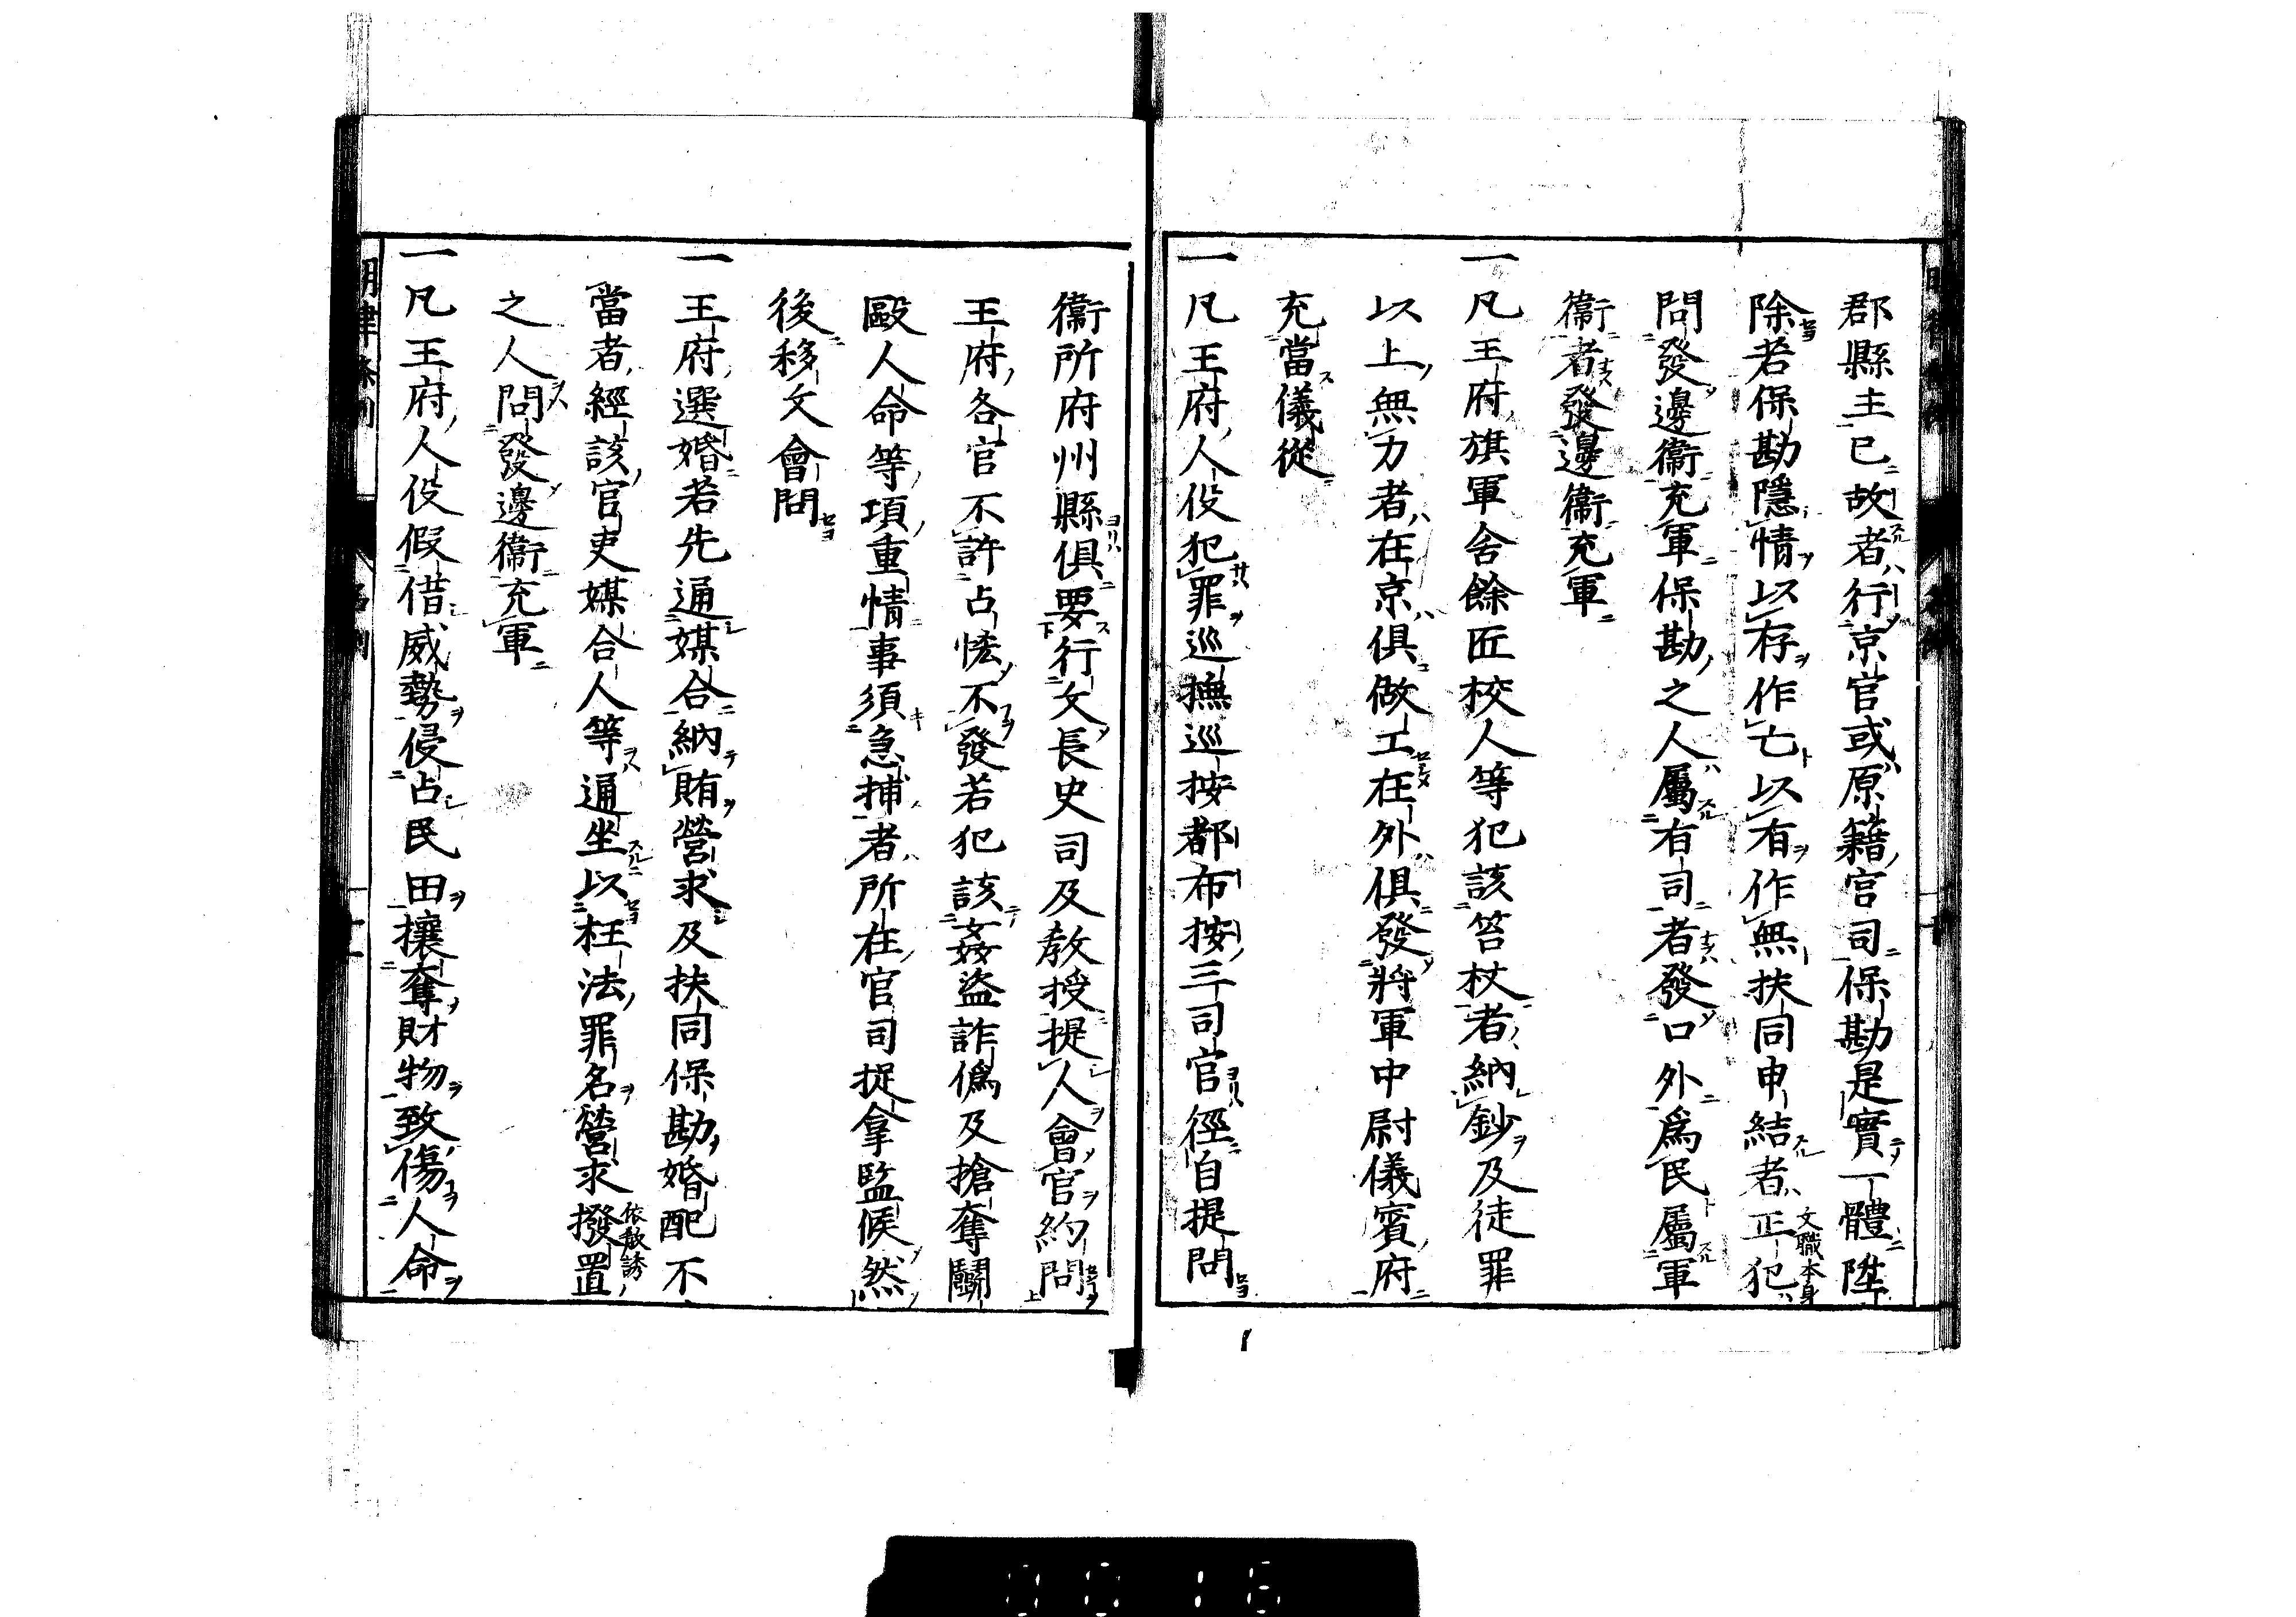 郡縣主已故者行京官或原籍官司保勘是實一體陞
除若保勘隱情以存作亡以有作無扶同申結者正犯文職本身
問發邊衞充軍保勘之人屬有司者發口外爲民屬軍
衞者發邊衞充軍
一凡王府旗軍舍餘匠校人等犯該笞杖者納鈔及徒罪
以上無力者在京俱做工在外俱發將軍中尉儀賓府
充當儀從
一凡王府人役犯罪巡撫巡按都布按三司官徑自提問
衞所府州縣俱要行文長史司及敎授提人會官約問
王府各官不許占恡不發若犯該姦盜詐僞及搶奪鬭
毆人命等項重情事須急捕者所在官司捉拿監候然
後移文會問
一王府選婚若先通媒合納賄營求及扶同保勘婚配不
當者經該官吏媒合人等通坐以枉法罪名營求撥置依教誘
之人問發邊衞充軍
一凡王府人役假借威勢侵占民田攘奪財物致傷人命
明律條例 名例